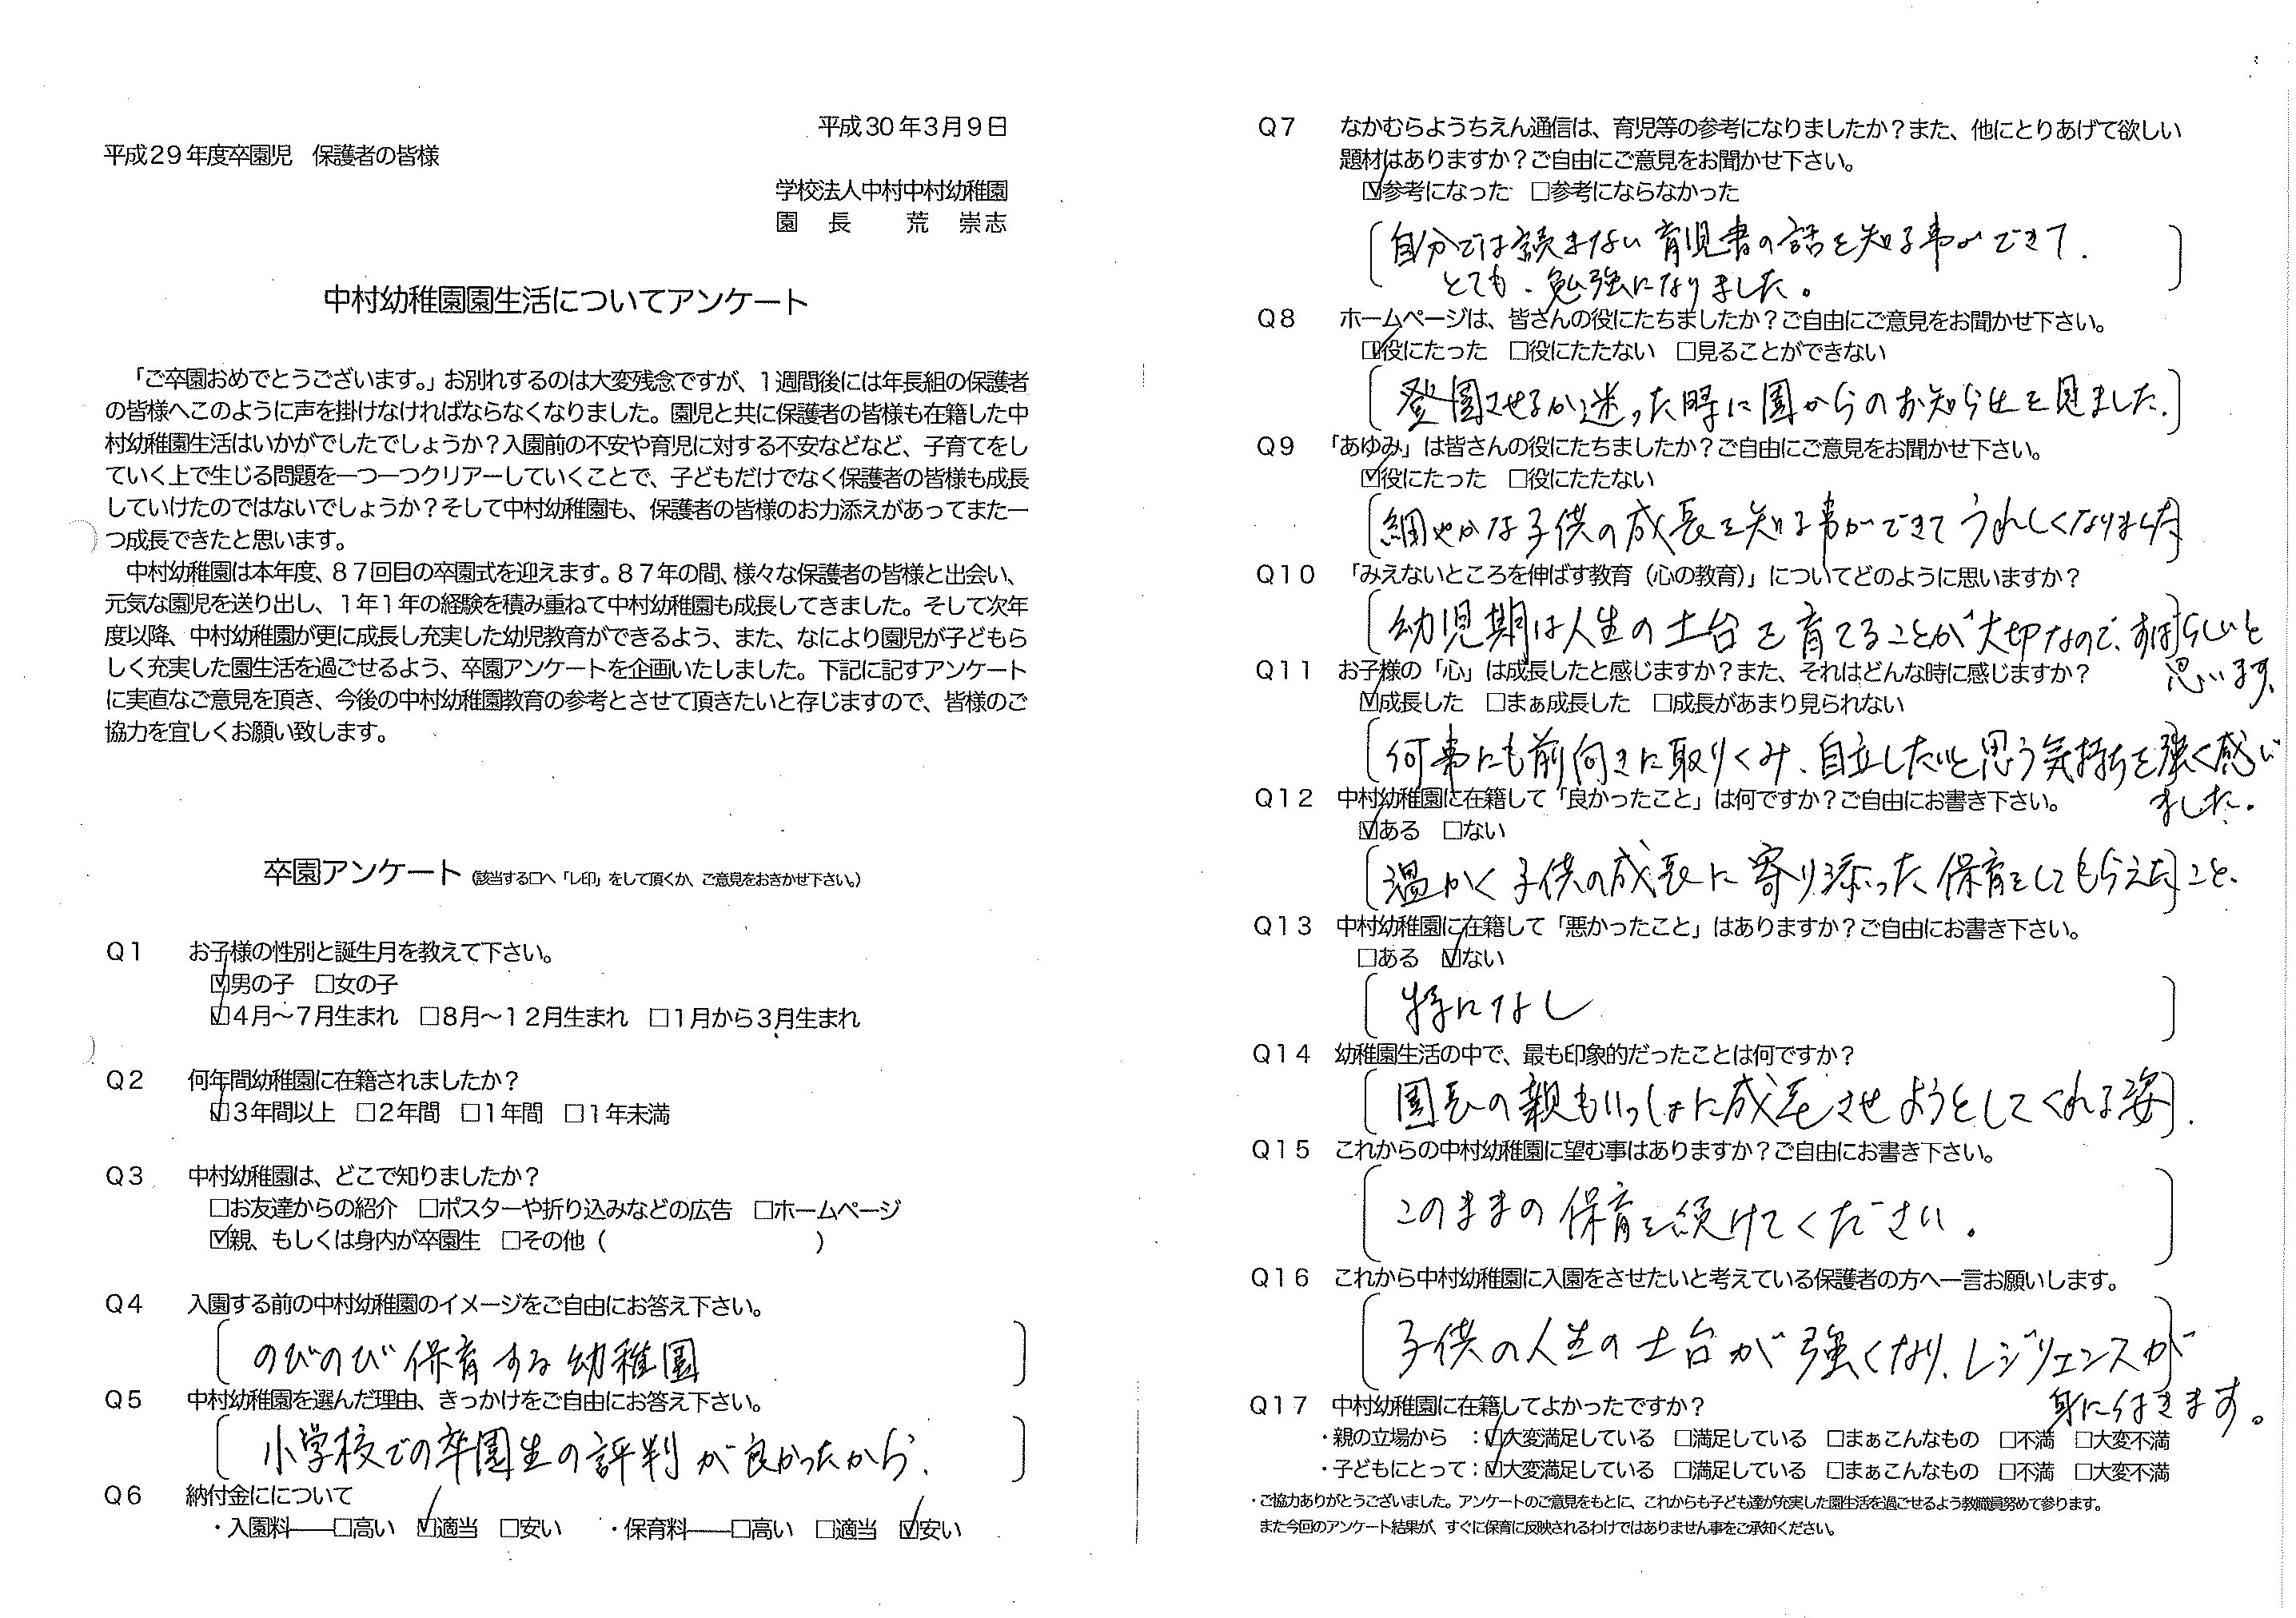 平成30年3月9日
平成29年度卒園児　保護者の皆様
学校法人中村中村幼稚園
園　長　　荒　崇志
中村幼稚園園生活についてアンケート
「ご卒園おめでとうございます。」お別れするのは大変残念ですが、1週間後には年長組の保護者
の皆様へこのように声を掛けなければならなくなりました。園児と共に保護者の皆様も在籍した中
村幼稚園生活はいかがでしたでしょうか？入園前の不安や育児に対する不安などなど、子育てをし
ていく上で生じる問題を一つ一つクリアーしていくことで、子どもだけでなく保護者の皆様も成長
していけたのではないでしょうか？そして中村幼稚園も、保護者の皆様のお力添えがあってまた一
つ成長できたと思います。
中村幼稚園は本年度、87回目の卒園式を迎えます。87年の間、様々な保護者の皆様と出会い、
元気な園児を送り出し、1年1年の経験を積み重ねて中村幼稚園も成長してきました。そして次年
度以降、中村幼稚園が更に成長し充実した幼児教育ができるよう、また、なにより園児が子どもら
しく充実した園生活を過ごせるよう、卒園アンケートを企画いたしました。下記に記すアンケート
に実直なご意見を頂き、今後の中村幼稚園教育の参考とさせて頂きたいと存じますので、皆様のご
協力を宜しくお願い致します。
卒園アンケート（該当する□へ「レ印」をして頂くか、ご意見をおきかせ下さい。）
Q1　お子様の性別と誕生月を教えて下さい。
☑男の子　□女の子
☑4月～7月生まれ　□8月～12月生まれ　□1月から3月生まれ
Q2　何年間幼稚園に在籍されましたか？
☑3年間以上　□2年間　□1年間　□1年未満
Q3　中村幼稚園は、どこで知りましたか？
□お友達からの紹介　□ポスターや折り込みなどの広告　□ホームページ
☑親、もしくは身内が卒園生　□その他（　　　　　　　　）
Q4　入園する前の中村幼稚園のイメージをご自由にお答え下さい。
のびのび保育する幼稚園
Q5　中村幼稚園を選んだ理由、きっかけをご自由にお答え下さい。
小学校での卒園生の評判が良かったから、
Q6　納付金にについて
・入園料――□高い　☑適当　□安い　・保育料――□高い　□適当　☑安い
Q7　なかむらようちえん通信は、育児等の参考になりましたか？また、他にとりあげて欲しい
題材はありますか？ご自由にご意見をお聞かせ下さい。
☑参考になった　□参考にならなかった
自分では読まない育児書の話を知る事ができて、
とても、勉強になりました。
Q8　ホームページは、皆さんの役にたちましたか？ご自由にご意見をお聞かせ下さい。
☑役にたった　□役にたたない　□見ることができない
登園させるか迷った時に園からのお知らせを見ました。
Q9　「あゆみ」は皆さんの役にたちましたか？ご自由にご意見をお聞かせ下さい。
☑役にたった　□役にたたない
細やかな子供の成長を知る事ができてうれしくなりました
Q10　「みえないところを伸ばす教育（心の教育）」についてどのように思いますか？
幼児期は人生の土台を育てることが大切なので、すばらしいと
思います、
Q11　お子様の「心」は成長したと感じますか？また、それはどんな時に感じますか？
☑成長した　□まぁ成長した　□成長があまり見られない
何事にも前向きに取りくみ、自立したいと思う気持ちを強く感じ
ました。
Q12　中村幼稚園に在籍して「良かったこと」は何ですか？ご自由にお書き下さい。
☑ある　□ない
温かく子供の成長に寄り添った保育をしてもらえたこと、
Q13　中村幼稚園に在籍して「悪かったこと」はありますか？ご自由にお書き下さい。
□ある　☑ない
特になし
Q14　幼稚園生活の中で、最も印象的だったことは何ですか？
園長の親もいっしょに成長させようとしてくれる姿.
Q15　これからの中村幼稚園に望む事はありますか？ご自由にお書き下さい。
このままの保育を続けてください。
Q16　これから中村幼稚園に入園をさせたいと考えている保護者の方へ一言お願いします。
子供の人生の土台が強くなり、レジリエンスが
身に付きます。
Q17　中村幼稚園に在籍してよかったですか？
・親の立場から　：☑大変満足している　□満足している　□まぁこんなもの　□不満　□大変不満
・子どもにとって：☑大変満足している　□満足している　□まぁこんなもの　□不満　□大変不満
・ご協力ありがとうございました。アンケートのご意見をもとに、これからも子ども達が充実した園生活を過ごせるよう教職員努めて参ります。
また今回のアンケート結果が、すぐに保育に反映されるわけではありません事をご承知ください。